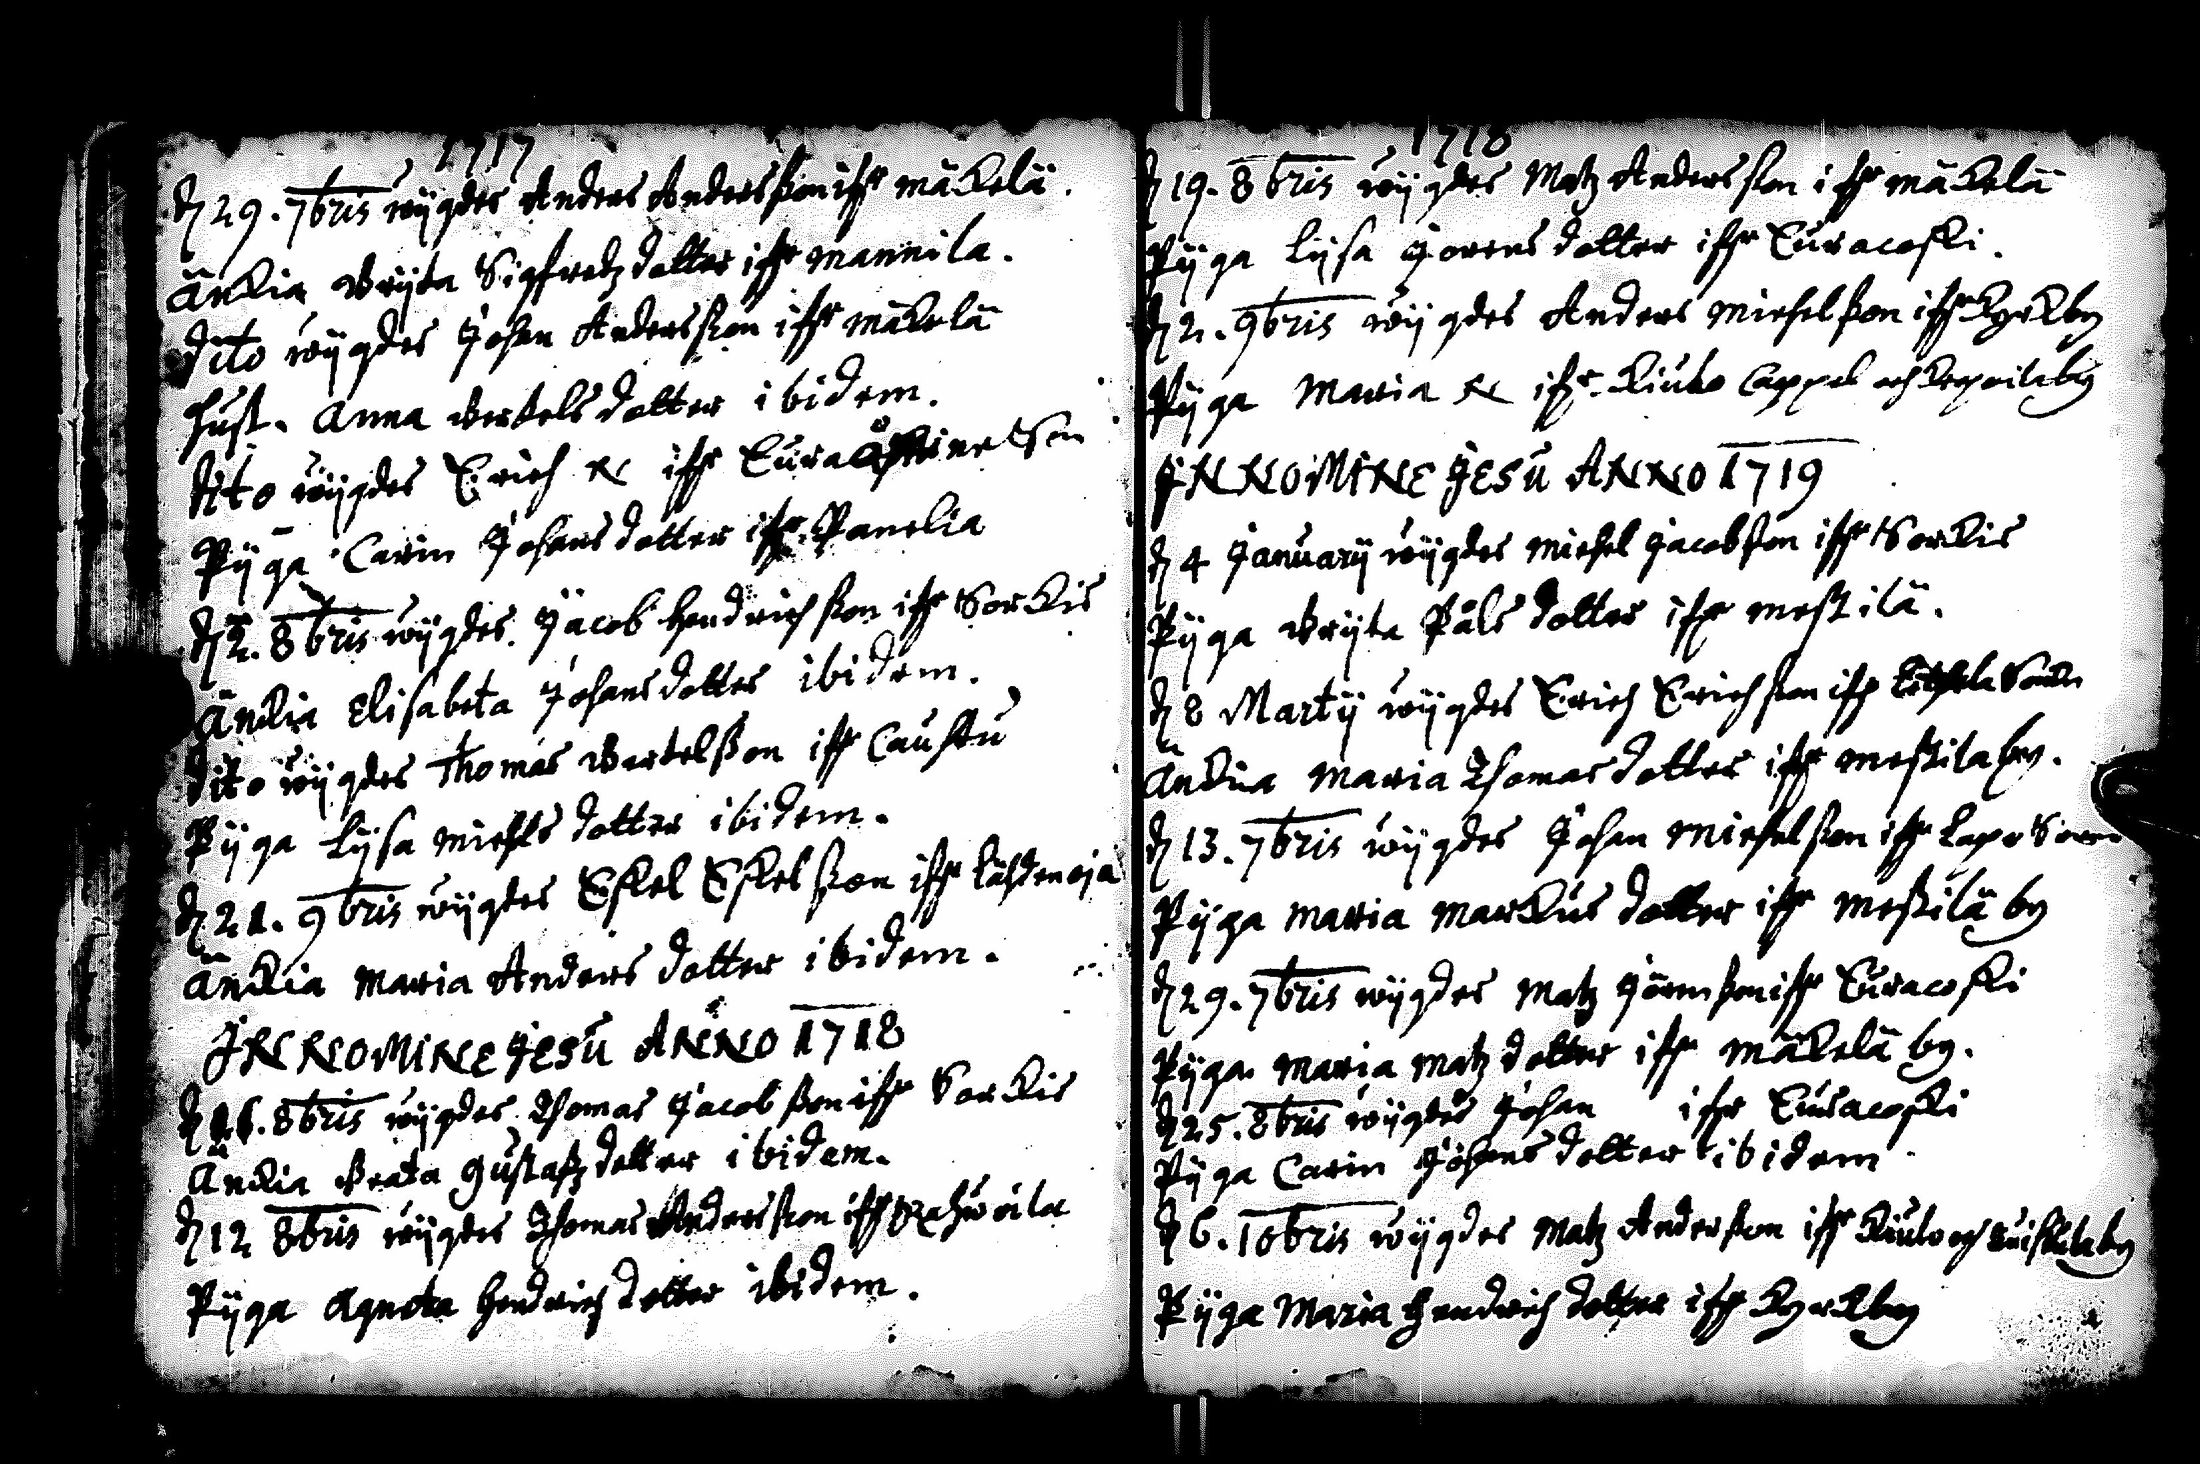 1717
d 29. 7bris wÿgdes Anders Andersßon ifr mäkelä.
änkia Brÿta Sigfredz dotter ifr mannila.
dito wÿgdes Johan Andersßon ifr mäkelä
hust. Anna Bertels dotter ibidem.
dito wÿgdes Erich N ifr Eura
Pÿga Carin Johans dotter ifr Panelia
d 2. 8bris wÿgdes Jacob Hendrichßon ifr Sorkis
Änkia Elisabeta Johans dotter ibidem.
dito wÿgdes Thomas Bertelßon ifr Caustu
Pÿga Lÿsa michls dotter ibidem.
d 21. 9bris wÿgdes Eskel Eskelßon ifr Lähdenoja
änkia Maria Anders dotter ibidem.
IN NOMINE JESU ANNO 1718
d 26. 8bris wÿgdes Thomas Jacobßon ifr Sorkis
Änkia Beata Gustafz dotter ibidem.
d 12 8bris wÿgdes Thomas Andersßon ifr
Pÿga Agneta Hendrich dotter ibidem.
1718
d 19. 8bris wÿgdes Matz Andersßon ifr mäkelä
Pÿga Lÿsa Jorens dotter ifr Euracoski.
d 2. 9bris wÿgdes Anders Michelßon ifr Kyrkby
Pÿga Maria N ifr Kiulo Cappel och by
IN NOMINE JESU ANNO 1719
d 4 Januarÿ wÿgdes Michel Jacobßon ifr Sorkis
Pÿga Brÿta Påls dotter ifr mestilä.
d 8 Martÿ wÿgdes Erich Erichßon ifr
änkia Maria Thomas dotter ifr mestila by.
d 13. 7bris wÿgdes Johan Michelßon ifr Lapo
Pÿga Maria Markus dotter ifr mestilä by
d 29. 7bris wÿgdes Matz Jörenßon ifr Euracoski
Pÿga Maria Matz dotter ifr mäkelä by.
d 25. 8bris wÿgdes Johan ifr Euracoski
Pÿga Carin Johans dotter ibidem
d 6. 10bris wÿgdes Matz Andersßon ifr Kiulo och by
Pÿga Maria Hendrich dotter ifr Kyrkby